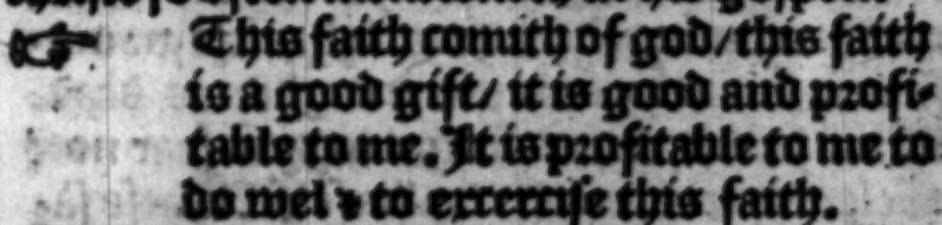 ☞ This faith comith of god/this faith
is a good gift/ it is good and profi-
table to me. It is profitable to me to
do wel & to excercise this faith.